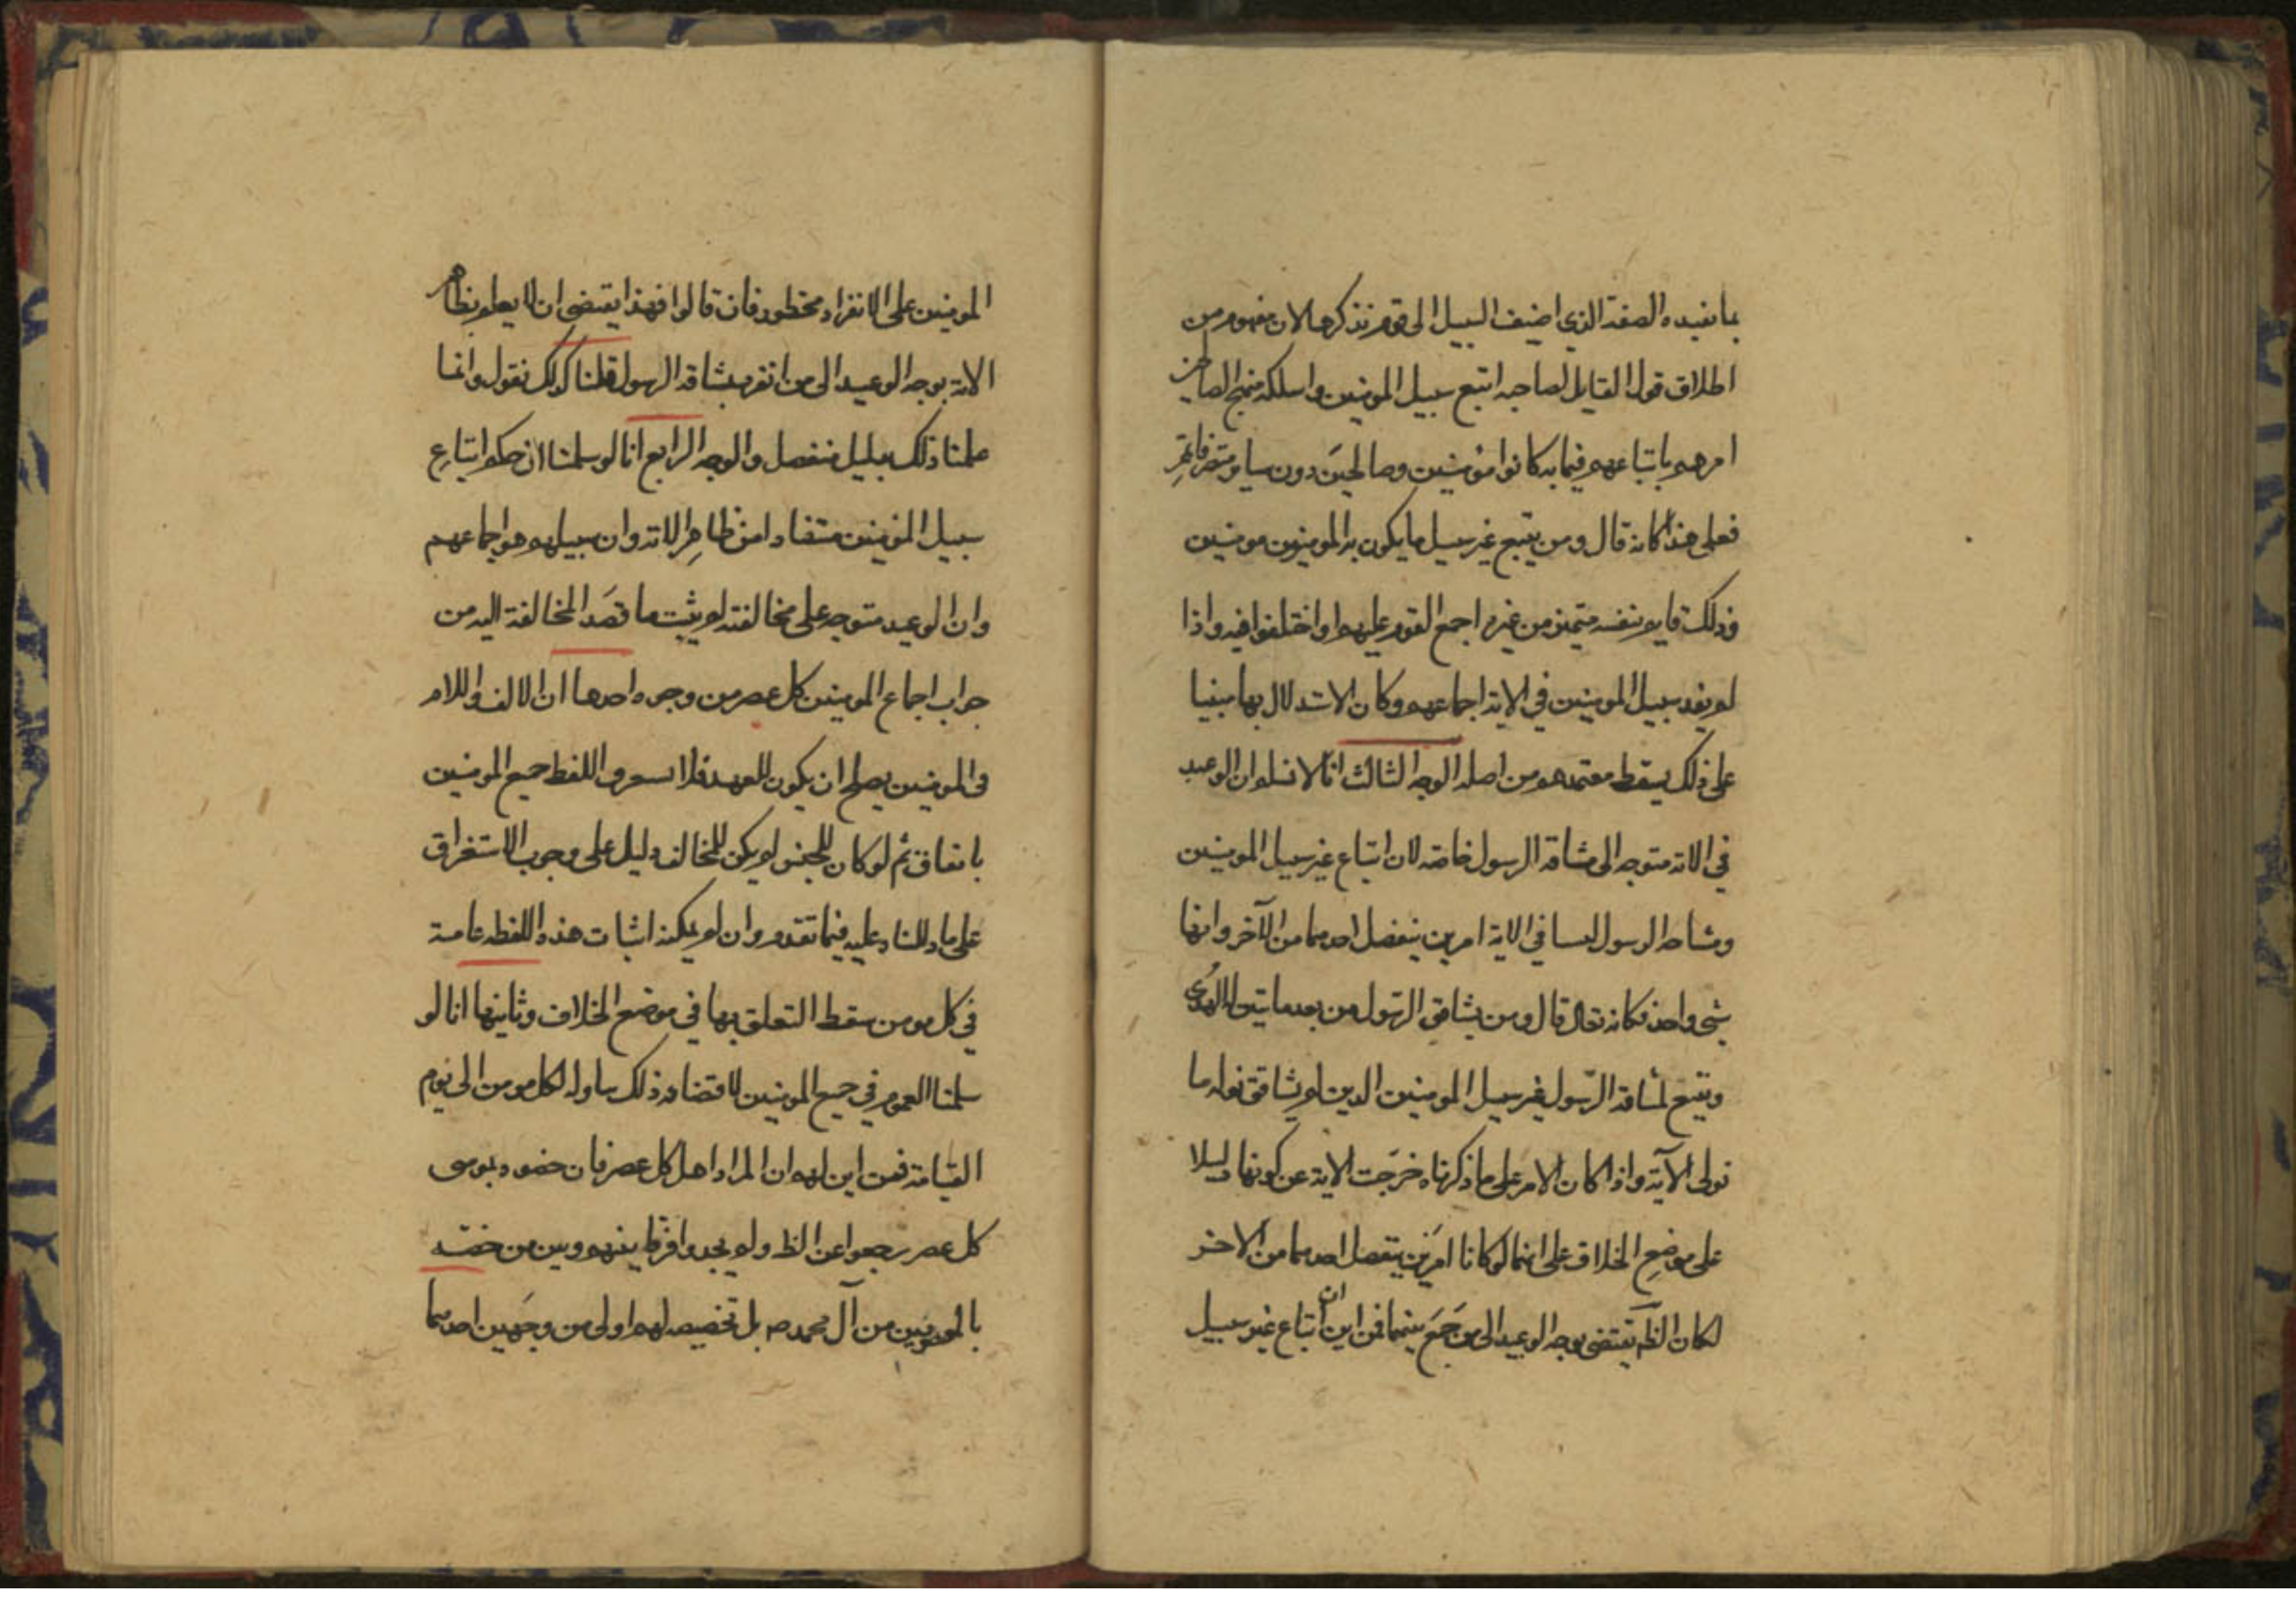 بما نفيده الصفة الذي اضيف السبيل الى قوم نذكرها لان مفهوم من
اطلاق قول القايل لصاحبه اتبع سبيل المومنين واسلك منهج الصالحين
امرهم باتباعهم فيما به كانوا مؤمنين وصالحين دون ساير متصرفاتهم
فعلى هذا كانه قال ومن يتبع غير سبيل ما يكون به المومنون مومنين
وذلك قايم بنفسه متميز من غيره اجمع القوم عليه او اختلفوا فيه واذا
لم يفد سبيل المومنين في الاية اجماعهم وكان الاستدلال بها مبنيا
على ذلك يسقط معتمدهم من اصله الوجه الثالث انا لا نسلم ان الوعيد
في الاية متوجه الى مشاقة الرسول خاصة لان اتباع غير سبيل المومنين
ومشاقة الرسول ليسا في الاية امرين ينفصل احدهما من الآخر وانها
شي واحد فكانه تعالى قال ومن يشاقق الرسول من بعد ما تبين له الهدى
ويتبع لمشاقة الرسول غير سبيل المومنين الذين لم يشاقق نوله ما
تولى الآية واذا كان الامر على ما ذكرناه خرجت الاية عن كونها دليلا
على موضع الخلاف على انهما لو كانا امرين ينفصل احدهما من الاخر
لكان الظ يقتضي بوجه الوعيد الى من جمع بينهما فمن اين ان اتباع غير سبيل
المومنين على الانفراد محظور فان قالوا فهذا يقتضي ان لا يعلم بظاهر
الاية بوجه الوعيد الى من انفرد بمشاقة الرسول قلنا كذلك نقول وانما
علمنا ذلك بدليل منفصل والوجه الرابع انا لو سلمنا ان حكم اتباع
سبيل المؤمنين مستفادا من ظاهر الاية وان سبيلهم هو اجماعهم
وان الوعيد متوجه على مخالفته لم يثبت ما قصد المخالفة اليه من
جواب اجماع المومنين كل عصر من وجوه احدها ان الالف واللام
في المومنين يصلح ان يكون للعهد فلا اللفظ جميع المومنين
باتفاق ثم لو كان للجنس لم يكن للمخالف دليل على وجوب الاستغراق
على ما دللنا عليه فيما تقدم وان لم يمكنه اثبات هذه اللفظه عامة
في كل مومن سقط التعلق بها في موضع الخلاف وثانيها انا لو
سلمنا العموم في جميع المومنين لاقتضاه ذلك تناوله لكل مومن الى يوم
القيامة فمن اين لهم ان المراد اهل كل عصر فان خصوه بمومنى
كل عصر رجعوا عن الظ ولم يجدوا فرقا بينهم وبين من خصه
بالمعصومين من آل محمد ص بل تخصيصه لهم اولى من وجهين احدهما